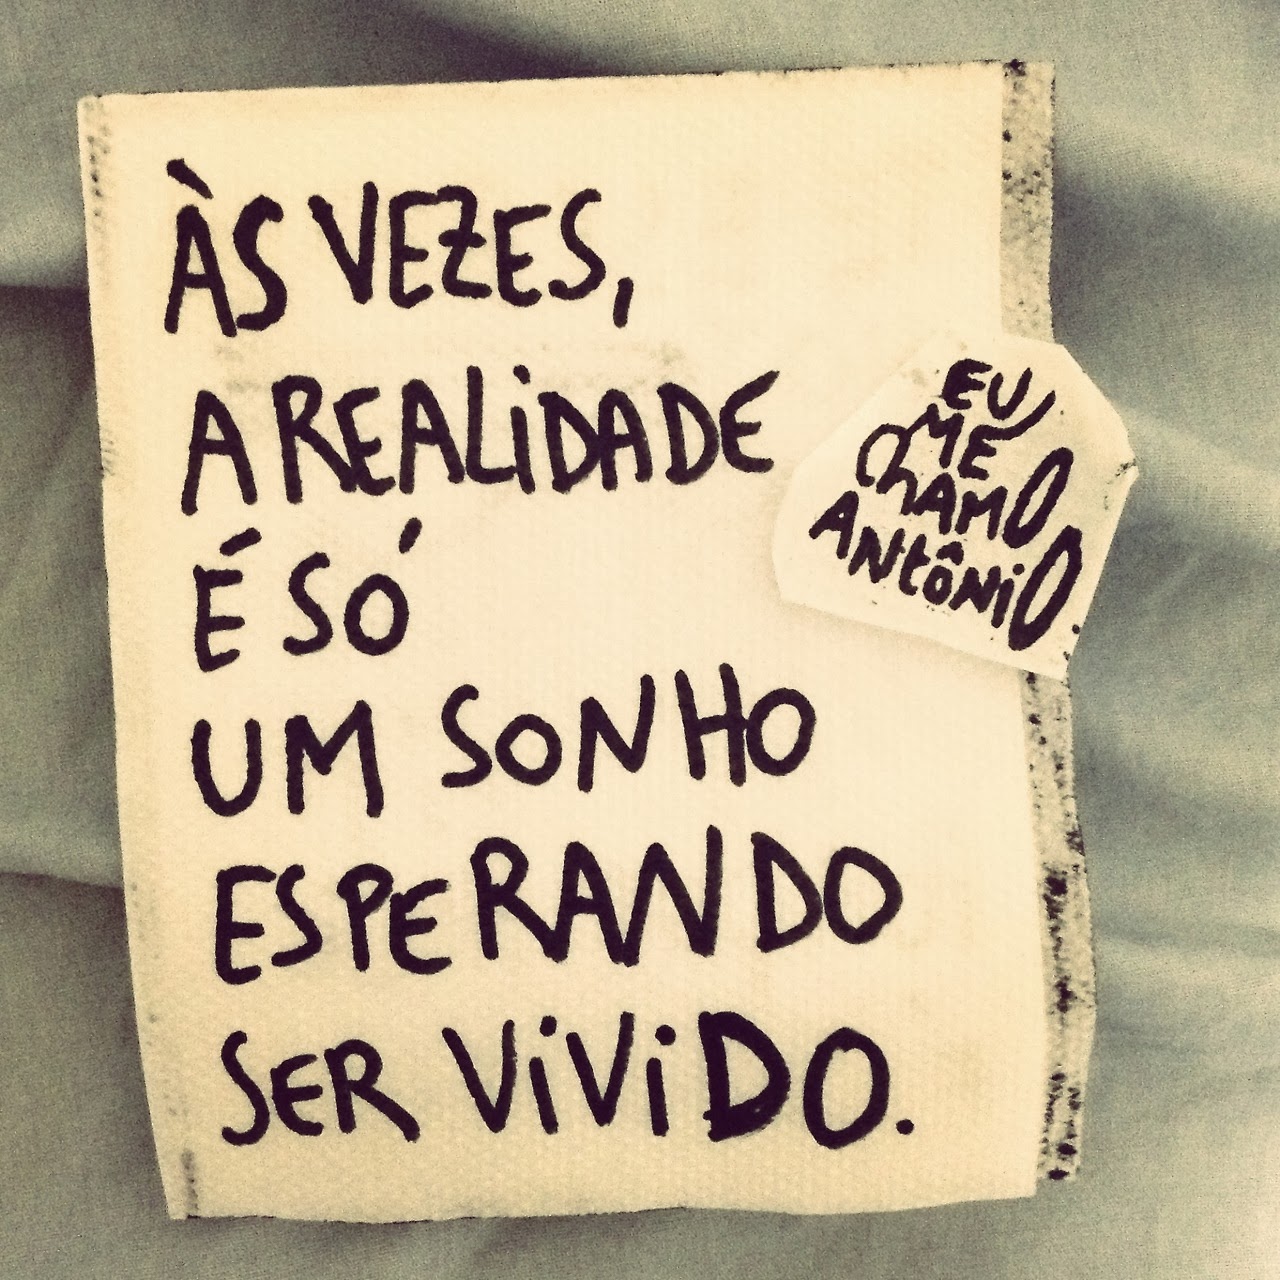 ÀS VEZES,
A REALiDADE
É SÓ
UM SONHO
ESPERANDO
SER ViViDO.
EU
ME
CHAMO
ANtôNiO